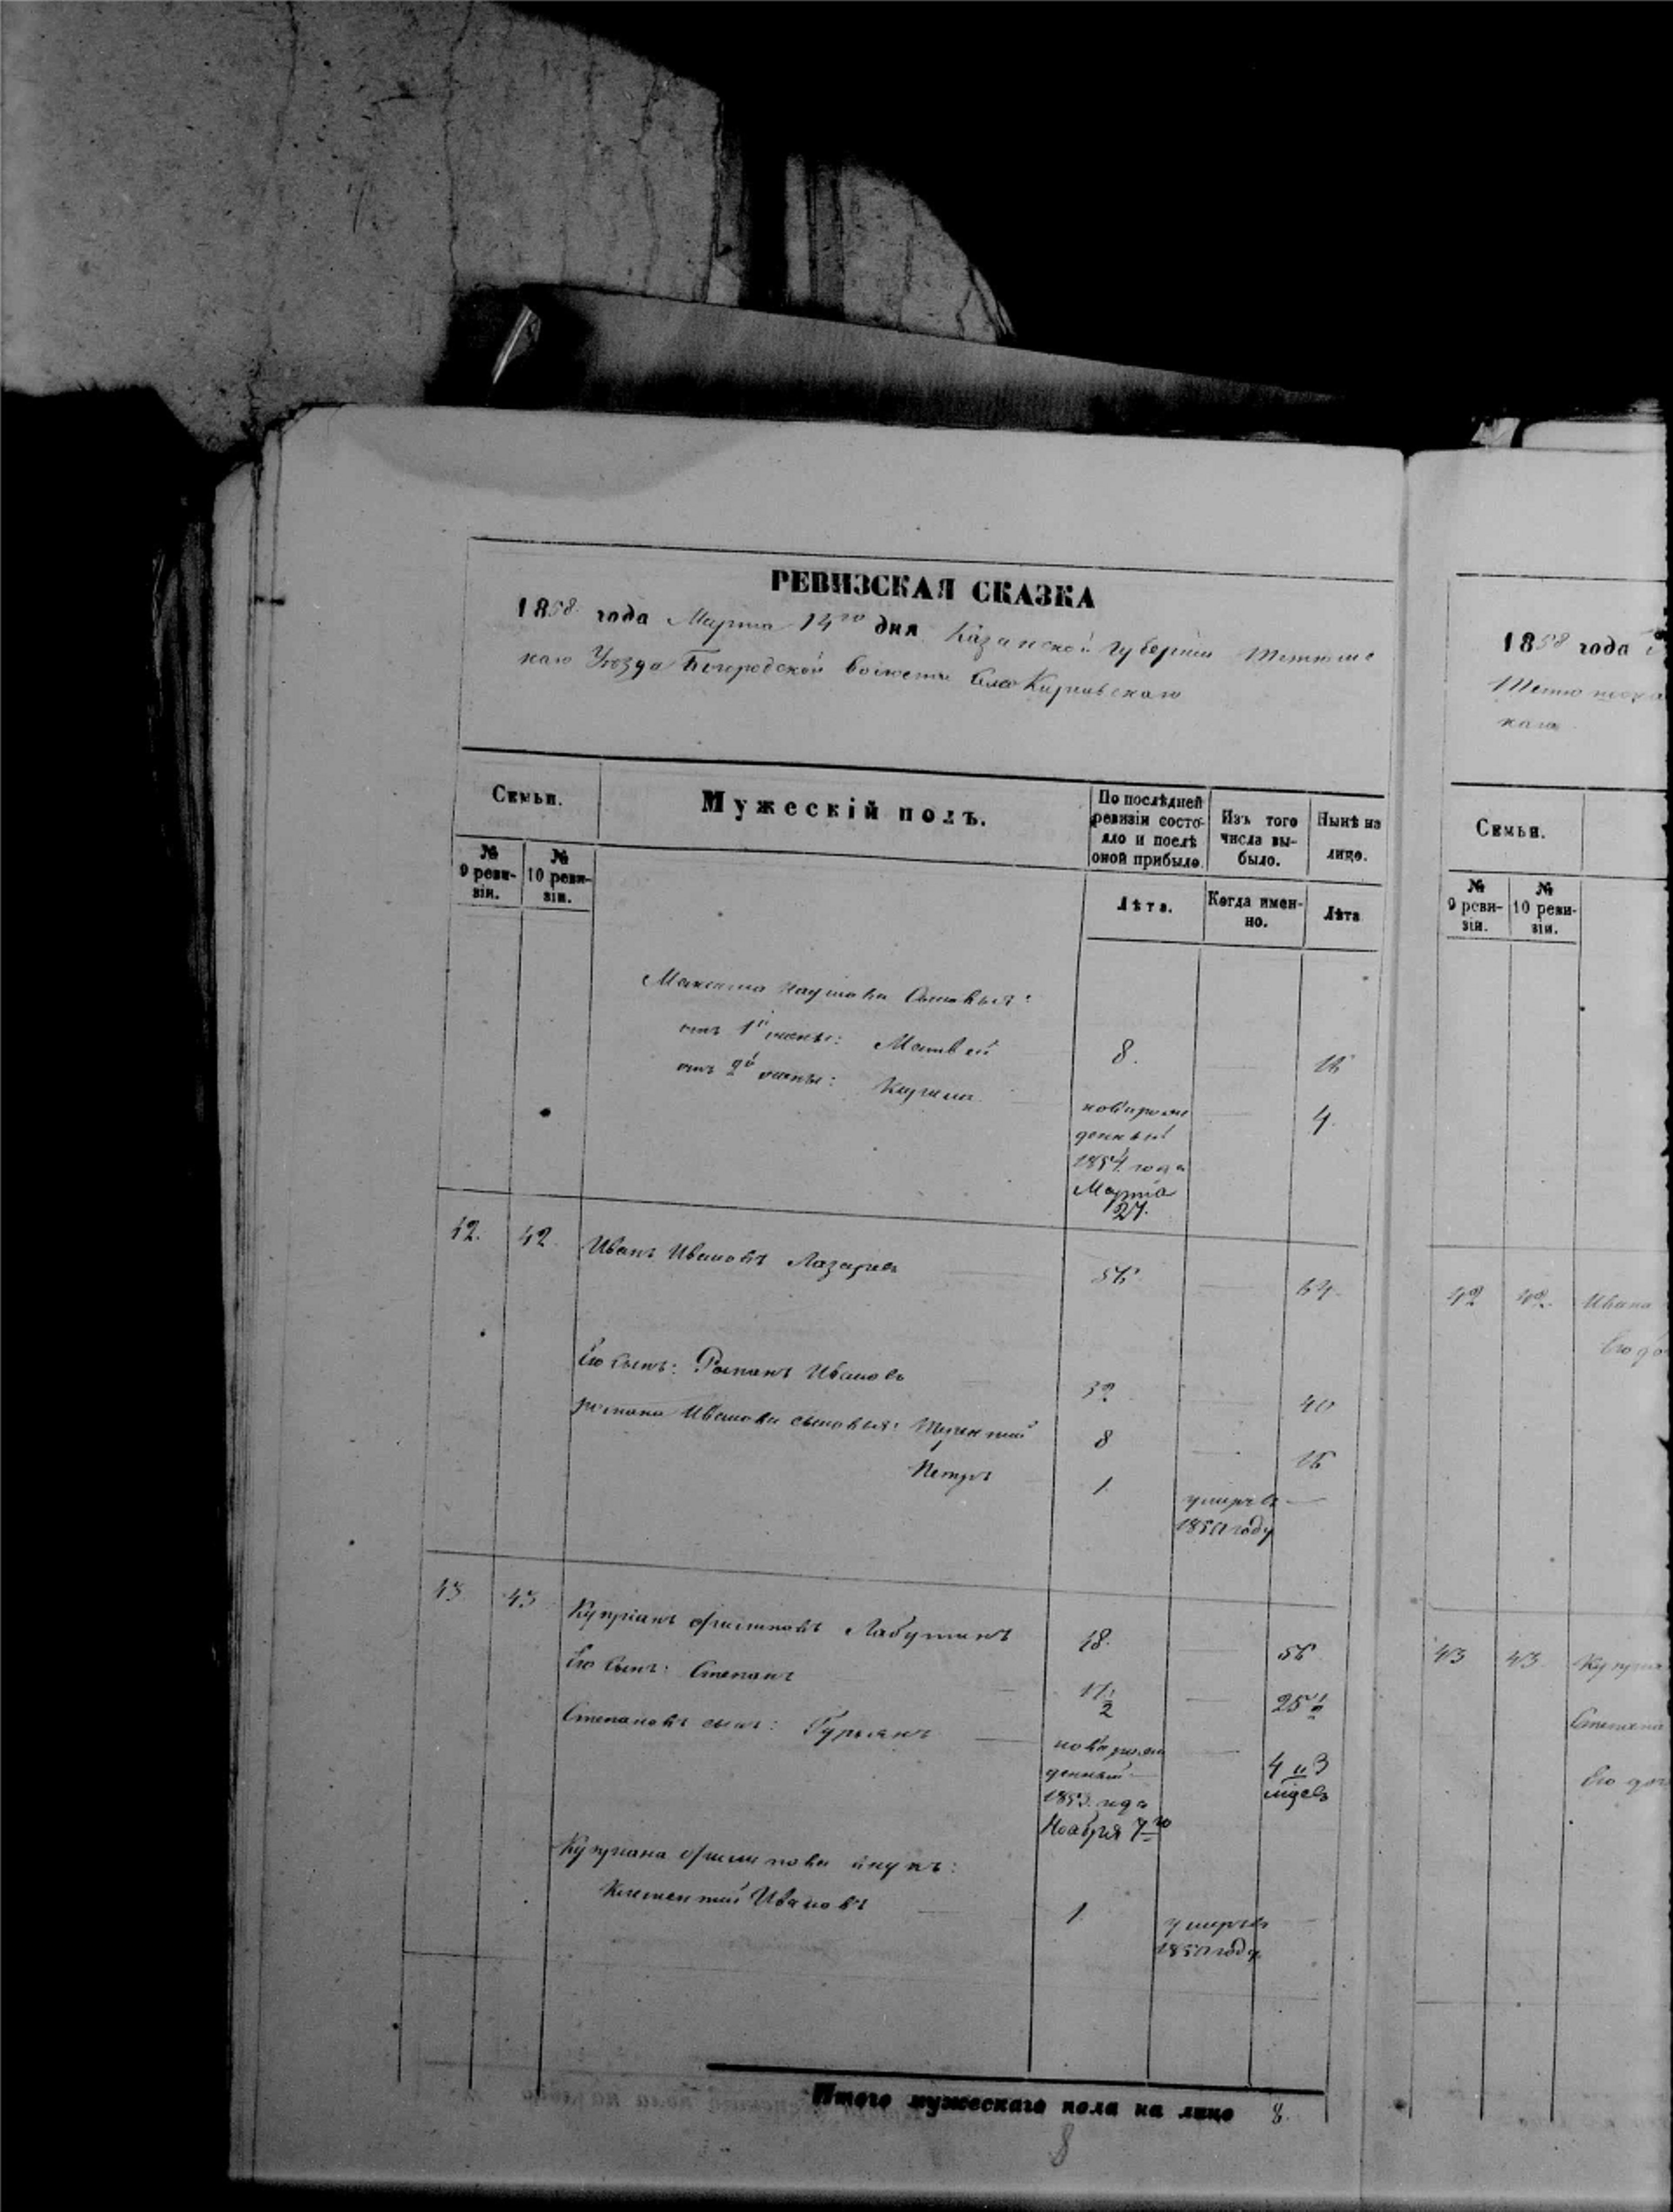 РЕВИЗСКАЯ СКАЗКА
1858 года Марта 14го дня Казанской Губернiи Тетюшс
каго Уезда Богородской Волости Села
Семьи.
Мужескiй полъ.
По послѣдней ревизiи состояло и послѣ оной прибыло.
Изъ того числа выбыло.
Нынѣ на лицо.
№ 9 ревизiи.
№ 10 ревизiи.
Лѣта.
Когда именно.
Лѣта
Максима Наумова Сыновья:
отъ 1й жены: Матвей 8. 16
отъ 2й жены: 4.
новорож
денный
1854 года
Марта
27.
42. 42. Иванъ Ивановъ Лазаревъ 56 64.
Его сынъ: Романъ Ивановъ 32 40
Романа Иванова сыновья: Терентий 8 16
Петръ 1. умеръ въ
1850 году
43 43 Купрiянъ Лабутинъ 48. 56
Его Сынъ: Степанъ 17 1/2 25 1/2
Степановъ сынъ: Гурьянъ новорож
денный 4 и 3
1853 года мѣсев
Ноября 7го
Купрiана внукъ:
Климентий Ивановъ 1. умеръ въ
1850 году
Итого мужескаго пола на лицо 8.
8
1858 года
каго
Семьи.
№ 9 ревизiи.
№ 10 ревизiи.
42 42. Ивана
Его до
43 43. Купрiя
Степана
Его доч